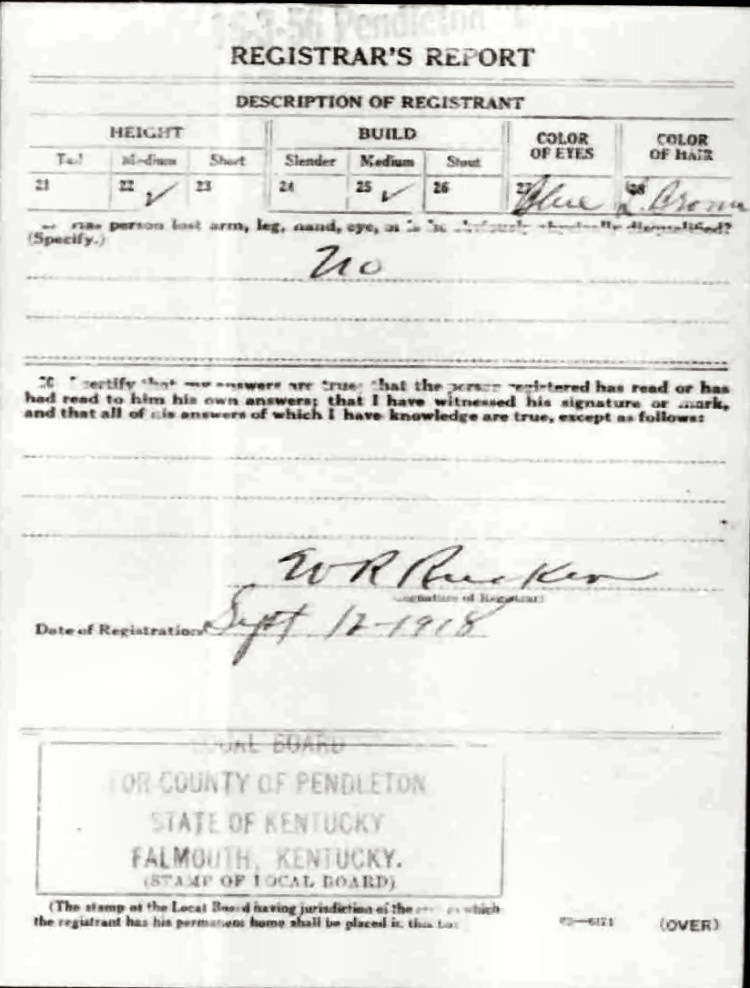 Pendleton
REGISTRAR'S REPORT
DESCRIPTION OF REGISTRANT
HEIGHT BUILD COLOR OF EYES COLOR OF HAIR
Tall Medium Short Slender Medium Stout
21 22 ✓ 23 24 25 ✓ 26 27 Blue 28 L. Brown
person lost arm, leg, hand, eye, or is he obviously physically disqualified?
(Specify.)
No
I certify that my answers are true; that the person registered has read or has
had read to him his own answers; that I have witnessed his signature or mark,
and that all of his answers of which I have knowledge are true, except as follows:
W R Rucker
Signature of Registrar
Date of Registration Sept 12-1918
LOCAL BOARD
FOR COUNTY OF PENDLETON
STATE OF KENTUCKY
FALMOUTH, KENTUCKY.
(STAMP OF LOCAL BOARD)
(The stamp of the Local Board having jurisdiction of the area in which
the registrant has his permanent home shall be placed in this box.
(OVER)